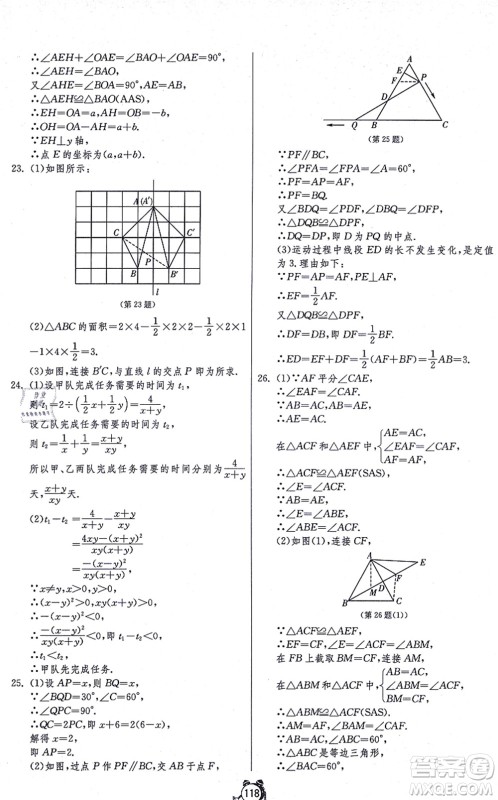 ∴∠AEH+∠OAE=∠BAO+∠OAE=90°,
∴∠AEH=∠BAO,
又∠AHE=∠BOA=90°, AE=AB,
∴△AEH≌△BAO(AAS),
∴EH=OA=a, AH=OB=-b,
∴OH=OA-AH=a-(-b)=a+b.
∵EH⊥y 轴,
∴点 E 的坐标为(a,a+b).
23. (1)如图所示:
A(A′)
C C′
P
B B′
l
(第 23 题)
(2)△ABC 的面积=2×4-1/2×2×2-1/2×2×1
-1×4×1/2=3.
(3)如图,连接 B′C,与直线 l 的交点 P 即为所求.
24. (1)设甲队完成任务需要的时间为 t₁,
则 t₁=2÷(1/2x+1/2y)=4/(x+y),
设乙队完成任务需要的时间为 t₂,
则 t₂=1/x+1/y=(x+y)/xy,
所以甲、乙两队完成任务需要的时间分别为 4/(x+y)
天,(x+y)/xy 天.
(2)t₁-t₂=4/(x+y)-(x+y)/xy
=(4xy-(x+y)²)/(xy(x+y))
=(-(x-y)²)/(xy(x+y)).
∵x≠y,x>0,y>0,
∴(x-y)²>0,xy(x+y)>0,
∴-(x-y)²<0,
∴(-(x-y)²)/(xy(x+y))<0,即 t₁-t₂<0,
∴t₁<t₂,
∴甲队先完成任务.
25. (1)设 AP=x,则 BQ=x,
∵∠BQD=30°,∠C=60°,
∴∠QPC=90°.
∴QC=2PC,即 x+6=2(6-x),
解得 x=2,
即 AP=2.
(2)如图,过点 P 作 PF∥BC,交 AB 于点 F,
A
E
F P
D
Q B C
(第 25 题)
∵PF∥BC,
∴∠PFA=∠FPA=∠A=60°,
∴PF=AP=AF,
∴PF=BQ.
又∠BDQ=∠PDF,∠DBQ=∠DFP,
∴△DQB≌△DPF,
∴DQ=DP,即 D 为 PQ 的中点.
(3)运动过程中线段 ED 的长不发生变化,是定值
为 3.理由如下:
∵PF=AP=AF,PE⊥AF,
∴EF=1/2AF.
又△DQB≌△DPF,
∴DF=DB,即 DF=1/2BF,
∴ED=EF+DF=1/2(AF+BF)=1/2AB=3.
26. (1)∵AF 平分∠CAE,
∴∠EAF=∠CAF.
∵AB=AC,AB=AE,
∴AE=AC.
在△ACF 和△AEF 中,{AE=AC,
∠EAF=∠CAF,
AF=AF,
∴△ACF≌△AEF(SAS),
∴∠E=∠ACF.
∵AB=AE,
∴∠ABE=∠E,
∴∠ABE=∠ACF.
(2)如图(1),连接 CF,
A E
F
D
M
B C
(第 26 题(1))
∵△ACF≌△AEF,
∴EF=CF,∠E=∠ACF=∠ABM,
在 FB 上截取 BM=CF,连接 AM.
在△ABM 和△ACF 中,{AB=AC,
∠ABM=∠ACF,
BM=CF,
∴△ABM≌△ACF(SAS),
∴AM=AF,∠BAM=∠CAF.
∵AB=AC,∠ABC=60°,
∴△ABC 是等边三角形,
∴∠BAC=60°,
118